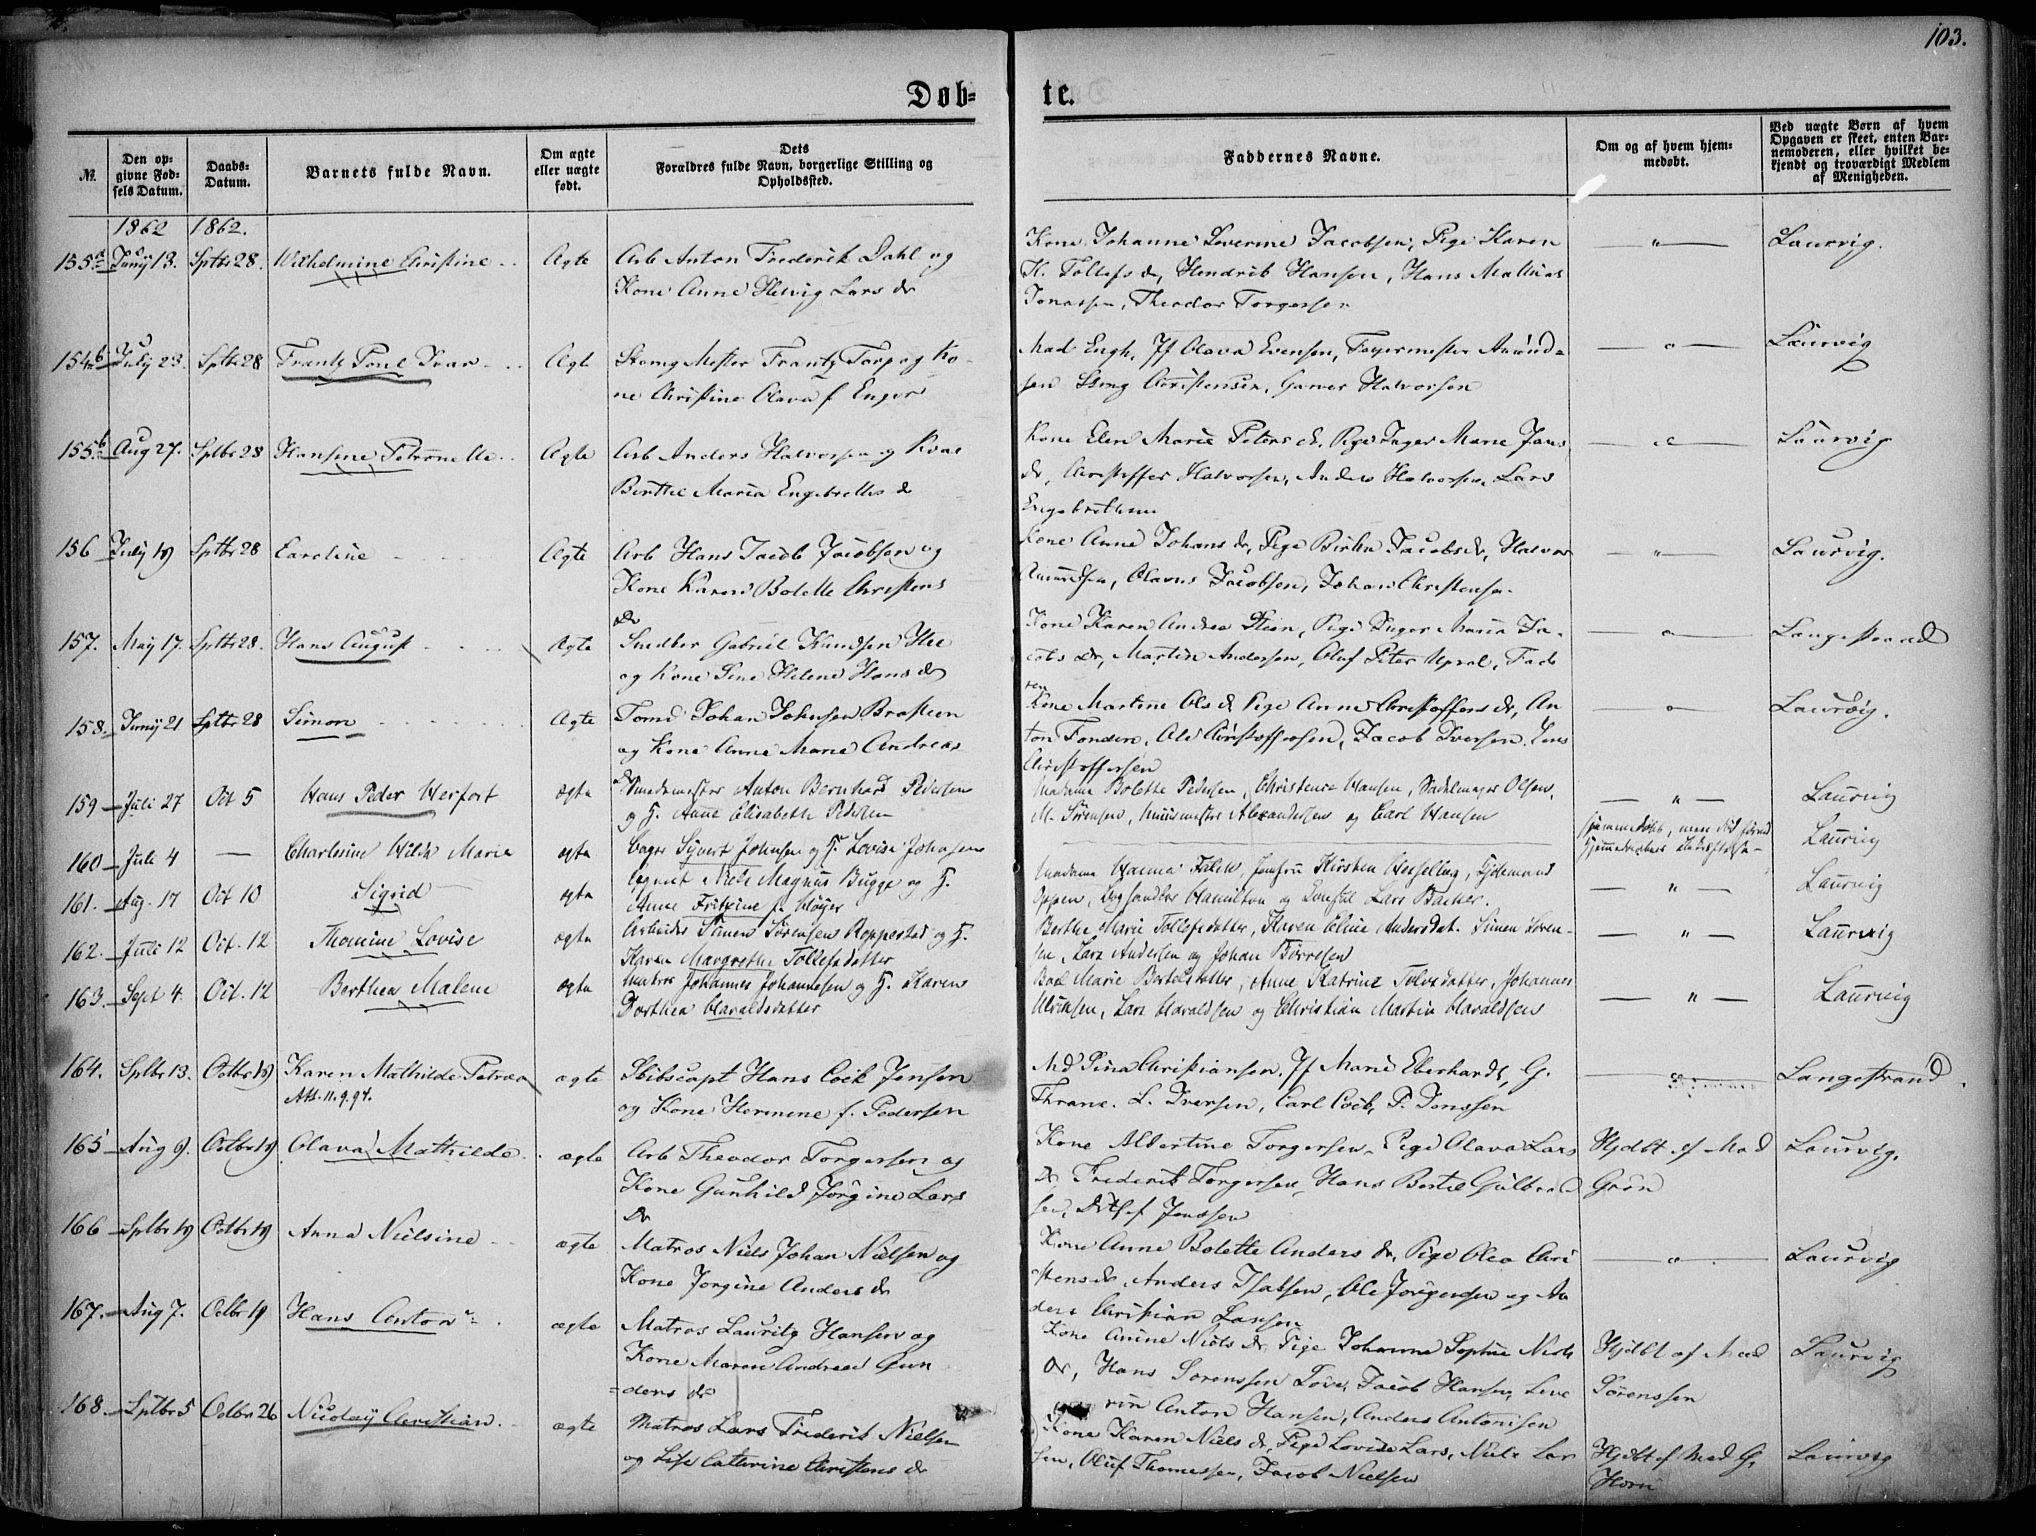 103.
Døb=
te.
№.
Den op-
givne Fød-
sels Datum.
Daabs-
Datum.
Barnets fulde Navn.
Om ægte
eller uægte
født.
Dets
Forældres fulde Navn, borgerlige Stilling og
Opholdssted.
Faddernes Navne.
Om og af hvem hjem-
medøbt.
Ved uægte Børn af hvem
Opgaven er skeet, enten Bar-
nemoderen, eller hvilket be-
kjendt og troværdigt Medlem
af Menigheden.
1862 1862.
155a Juny 13. Sptbr 28. Wilhelmine Christine Ægte Arb Anton Frederik Dahl og
Kone Anne Helvig Lars dr
Kone Johanne Severine Jacobsen, Pige Karen
K. Tollefs dr, Hendrik Hansen, Hans Mathias
Jonassen, Theodor Torgersen
— " — Laurvig.
154b July 23. Sptbr 28 Frantz Poul Ivar Ægte Mester Frantz Torp og Ko-
ne Christine Olava f Enger
Mad Engh, Jf Olava Evensen, Farvermester Amund-
sen Christensen, Garver Halvorsen
— " — Laurvig
155b Aug 27. Sptbr 28 Hansine Petronelle Ægte Arb Anders Halvorsen og Kone
Berthe Maria Engebretts dr
Kone Elen Marie Peters dr. Pige Inger Marie Jans
dr, Christoffer Halvorsen, Anders Halvorsen, Lars
Engebrethsen
— " — Laurvig
156 July 19 Sptbr 28 Caroline Ægte Arb Hans Jacob Jacobsen og
Kone Karen Bolette Christens
dr
Kone Anne Johans dr, Pige Birthe Jacobsdr, Halvor
Amundsen, Olavus Jacobsen, Johan Christensen
— " — Laurvig.
157. May 17. Sptbr 28. Hans August Ægte Snedker Gabriel Knudsen
og Kone Sine Helene Hans dr
Kone Karen Andrea Steen, Pige Inger Maria Ja-
cobs dr, Martin Andersen, Oluf Peter, Fade
ren
— " — Langestrand
158. Juny 21 Sptbr 28 Simon Ægte Tømd Johan Johnsen Brasteen
og Kone Anne Marie Andreas
dr
Kone Martine Ols dr Pige Anne Christoffers dr, An
ton, Ole Christoffersen, Jacob Iversen, Jens
Christoffersen
— " — Laurvig.
159 Juli 27 Oct 5 Hans Peder Herfort ægte Anton Bernhard Pedersen
og H. Anne Elisabeth Pedersen
Madame Bolette Pedersen, Christence Hansen, Sadelmager Olsen,
M. Sørensen, Muurmester Alexandersen og Carl Hansen
— " — Laurvig
160 Juli 4 — Charlotine Hilda Marie ægte Bager Syvert Johnsen og H. Lovise Johansen
Hjemmedøbt, men død førend
Laurvig
161. Aug. 17 Oct 10 Sigrid ægte Niels Magnus Bugge og H.
Anne Fritzine f. Møyer
Madame Hanna Falck, Jomfru Kirsten Hesselberg, Fjeldmand
Oppen, Hamilton og Consul Lars Backer.
— " — Laurvig
162. Juli 12 Oct. 12 Thomine Lovise ægte Arbeider Simen Sørensen Roppestad og H.
Karen Margrethe Tollefsdatter
Berthe Marie Tollefsdatter, Karen Eline Andersdat. Simen Soren-
sen, Lars Andersen og Johan Børresen
— " — Laurvig
163. Sept 4. Oct. 12 Berthea Malene ægte Matros Johannes Johannesen og H. Karen
Dorthea Haraldsdatter
Marie Bertelsdatter, Anne Katrine datter, Johannes
, Lars Haraldsen og Christian Martin Haraldsen
— " — Laurvig
164. Sptbr 13. Octbr 19 Karen Mathilde Petrea ægte Skibscapt Hans Cock Jensen
Att. 11.9.97. og Kone Hermine f. Pedersen
Md Pina Christiansen. Jf Marie Eberhardt, G.
Thrane. L. Iversen, Carl Cock, P. Jonssen
— " — Langestrand.
165 Aug 9. Octbr 19 Olava Mathilde. ægte Arb Theodor Torgersen og
Kone Gunhild Jørgine Lars
dr
Kone Albertine Torgersen, Pige Olava Lars
dr, Frederik Torgersen, Hans Bertil Gulbrand
sen, Ditlef Jenssen
Hjdbt af Mad
Grøn
Laurvig.
166 Sptbr 19 Octbr 19 Anna Nielsine ægte Matros Niels Johan Nielsen og
Kone Jørgine Anders dr
Kone Anne Bolette Anders dr, Pige Olea Chri
stens dr, Anders Isaksen, Ole Jørgensen og An
ders Christian Larsen
— " — Laurvig
167. Aug 7. Octbr 19 Hans Anton ægte Matros Lauritz Hansen og
Kone Maren Andrea Gun
ders dr
Kone Anne Niels dr Pige Johanna Sophie Niels
dr, Hans Sørenssen, Jacob Hansen,
Anton Hansen, Anders Antonisen
Hjdbt af Mad
Sørenssen
Laurvig
168. Sptbr 5 Octbr 26 Nicolay Christian. ægte Matros Lars Friderik Nielsen
og Lise Catherine Christens dr
Kone Karen Niels dr, Pige Lovise Lars, Niels Lar
sen, Oluf Thomessen, Jacob Nielsen
Hjdbt af Mad G.
Horn
Laurvig